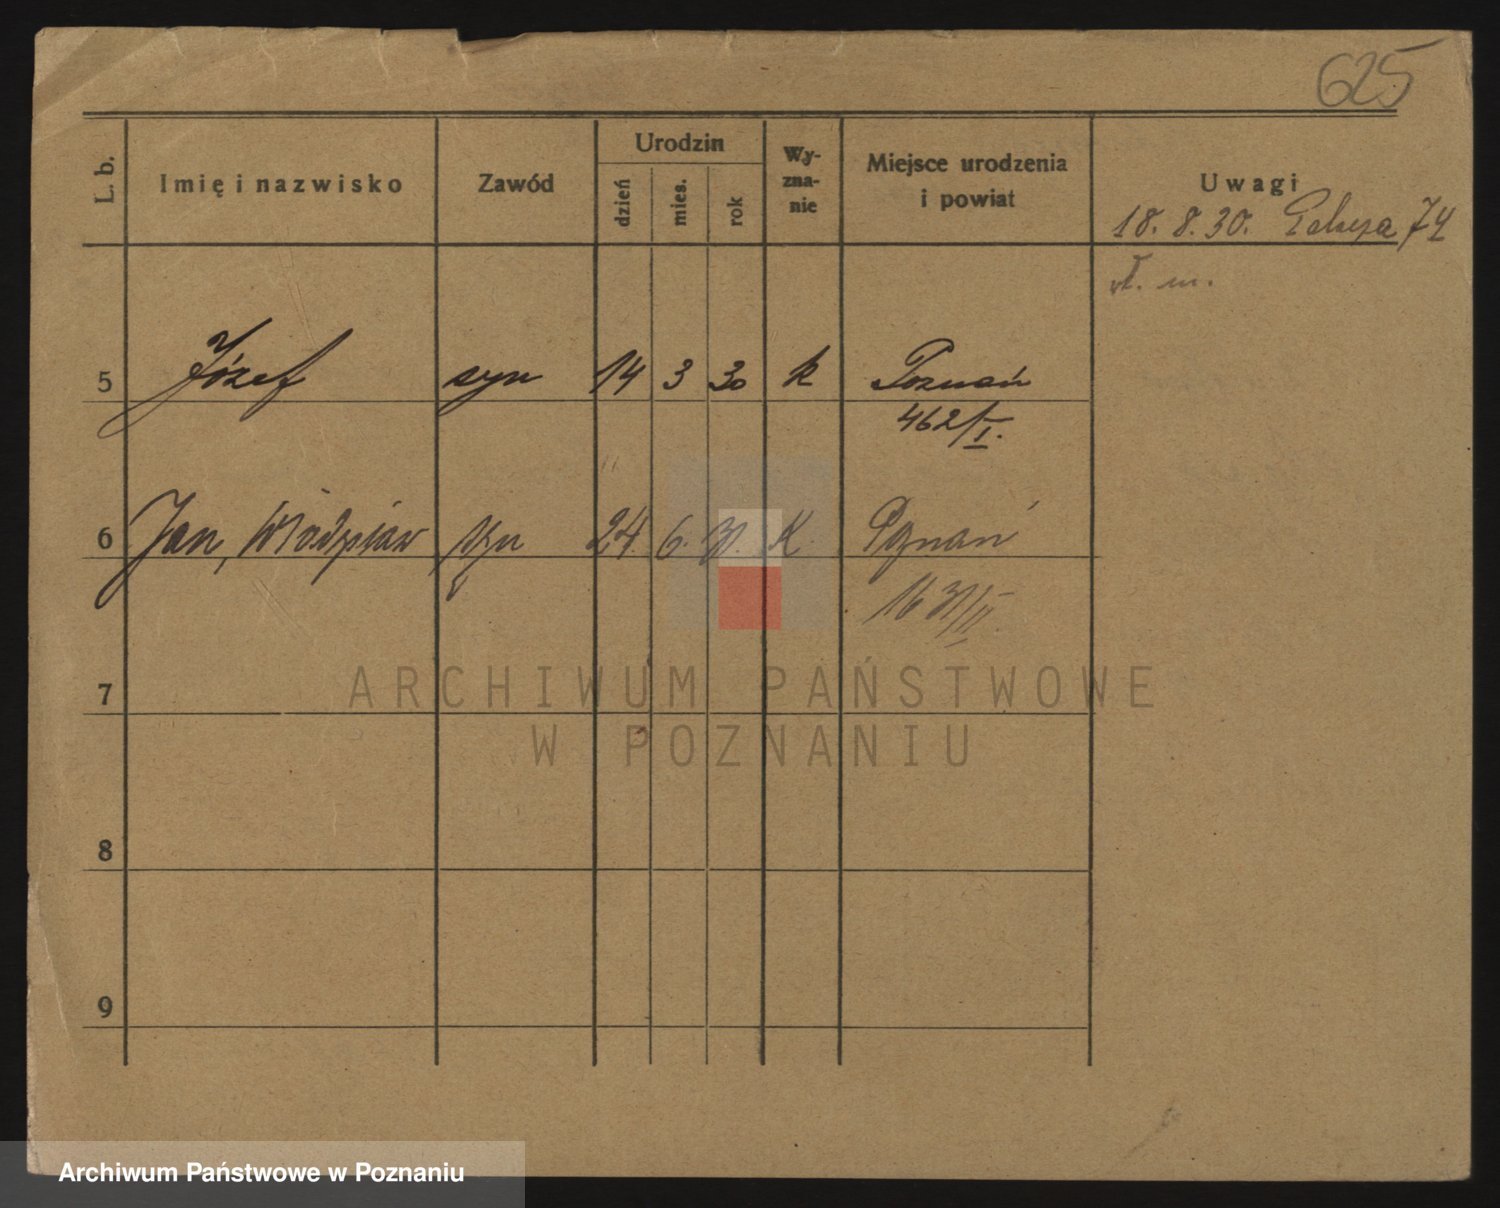 625
L. b. Imię i nazwisko Zawód Urodzin dzień mies. rok Wy-zna-nie Miejsce urodzenia i powiat Uwagi
18. 8. 30. 74
wł. m.
5 Józef syn 14 3 30 k Poznań
462/I.
6 Jan, syn 24. 6. 31. K. Poznań
16 31/II
7
8
9
ARCHIWUM PAŃSTWOWE
W POZNANIU
Archiwum Państwowe w Poznaniu